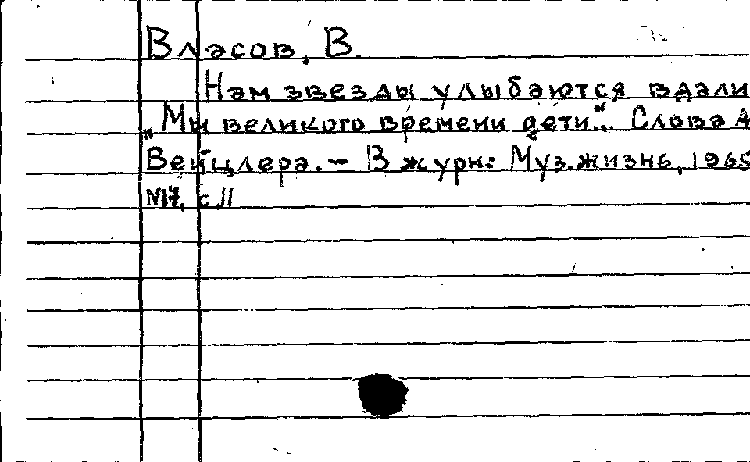 Власов, В.
Нам звезды улыбаются вдали
„Мы великого времени дети“. Слова А
Вейцлера. – В журн: Муз. жизнь, 1965
N17, с 11